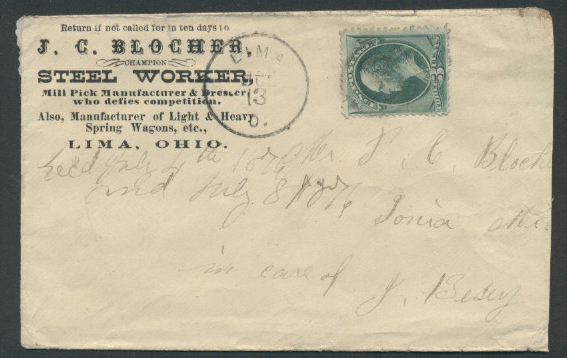 Return if not called for in ten days to
J. C. BLOCHER,
CHAMPION
STEEL WORKER,
Mill Pick Manufacturer & Dresser,
who defies competition.
Also, Manufacturer of Light & Heavy
Spring Wagons, etc.,
LIMA, OHIO.
LIMA
13
O.
Recd July 4th 1876
P. C. Bloche
and July 8th 1876
Ionia Mic
in care of
J.